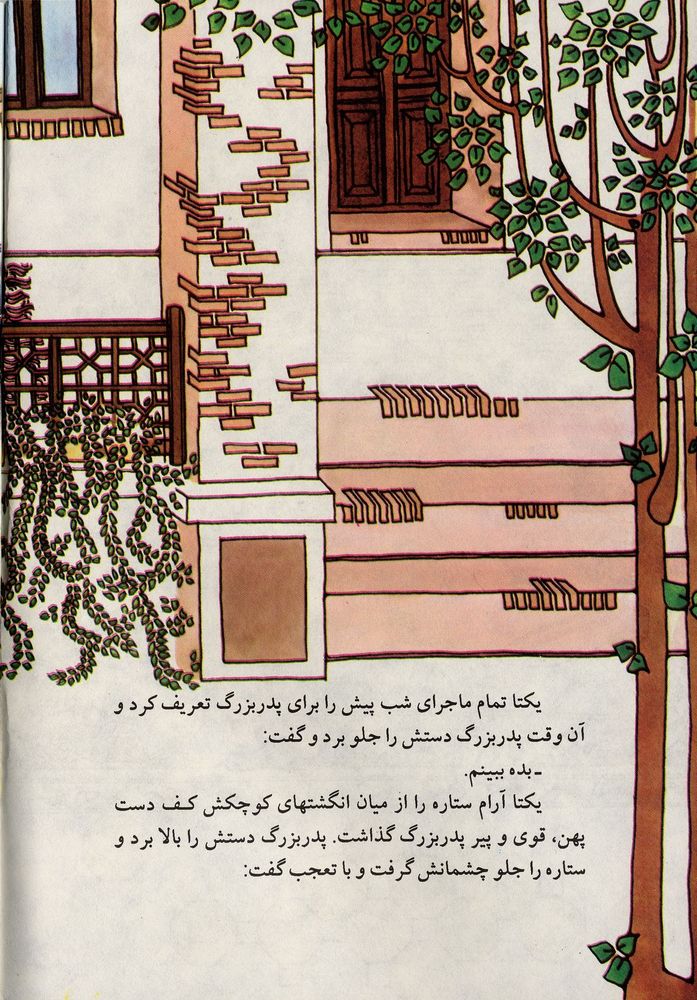 یکتا تمام ماجرای شب پیش را برای پدربزرگ تعریف کرد و
آن وقت پدربزرگ دستش را جلو برد و گفت:
ـ بده ببینم.
یکتا آرام ستاره را از میان انگشتهای کوچکش کـف دست
پهن، قوی و پیر پدربزرگ گذاشت. پدربزرگ دستش را بالا برد و
ستاره را جلو چشمانش گرفت و با تعجب گفت: